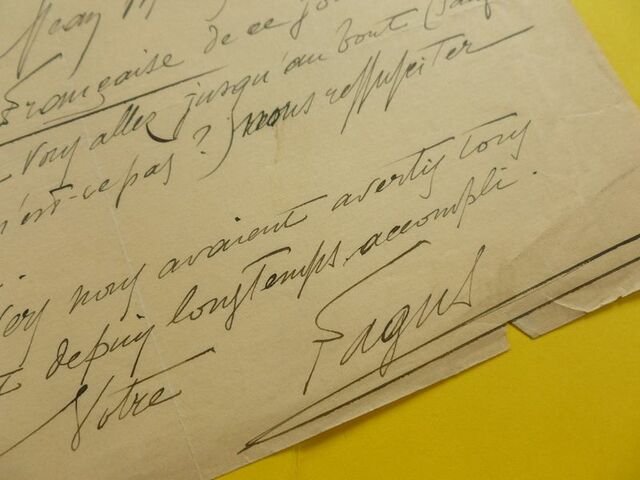 Française de ce
vous allez jusqu'au bout
n'est-ce pas ?) nous ressusciter
nous avaient avertis tous
depuis longtemps accompli.
Votre Fagus